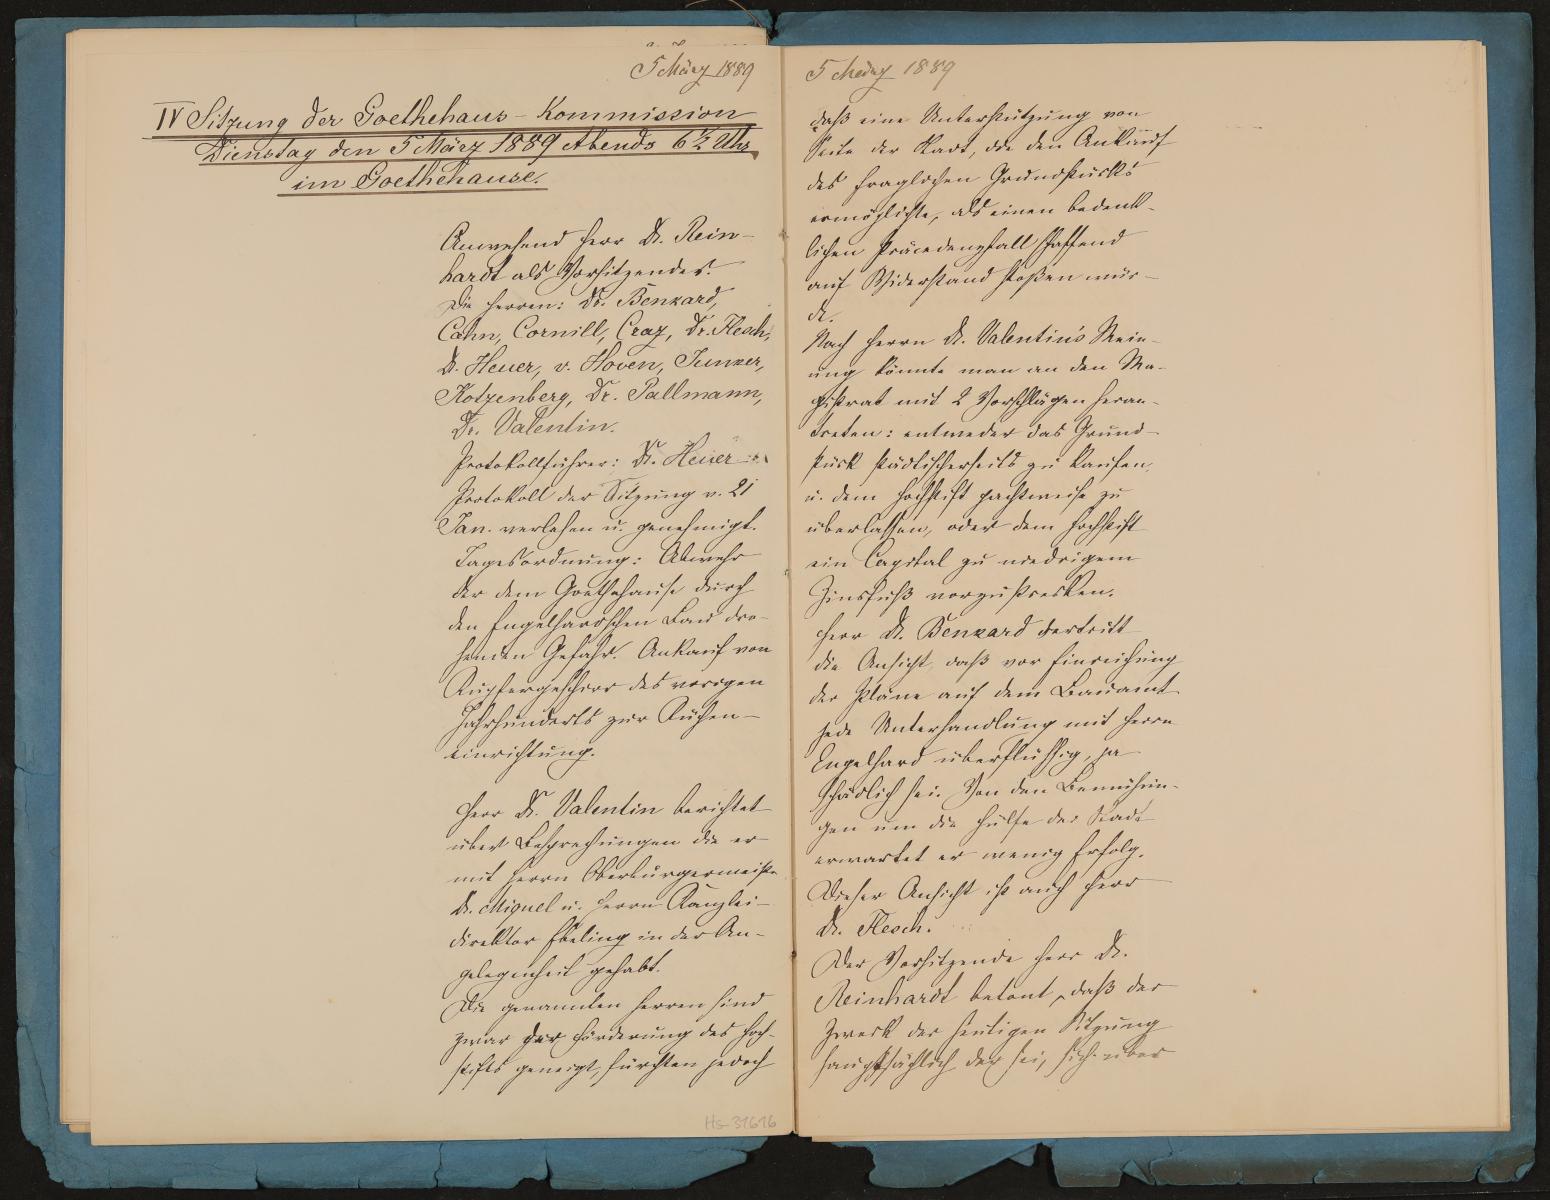 5 März 1889
IV Sitzung der Goethehaus-Kommission
Dienstag den 5 März 1889 Abends 6½ Uhr
im Goethehause.
Anwesend Herr Dr. Rein-
hardt als Vorsitzender.
Die Herren: Dr. Benkard,
Cahn, Cornill, Craz, Dr. Flesch,
Dr. Heuer, v. Hoven, Junker,
Kotzenberg, Dr. Pallmann,
Dr. Valentin.
Protokollführer: Dr. Heuer
Protokoll der Sitzung v. 21
Jan. verlesen u. genehmigt.
Tagesordnung: Abwehr
der dem Goethehause durch
den Engelhardschen Bau dro-
henden Gefahr. Ankauf von
Kupfergeschirr des vorigen
Jahrhunderts zur Küchen-
einrichtung.
Herr Dr. Valentin berichtet
über Besprechungen die er
mit Herrn Oberbürgermeister
Dr. Miquel u. Herrn Kanzlei-
direktor Ebeling in der An-
gelegenheit gehabt.
Die genannten Herren sind
zwar der Förderung des Hoch-
stifts geneigt, fürchten jedoch
Hs-31616
5 März 1889
daß eine Unterstützung von
Seite der Stadt, die den Ankauf
des fraglichen Grundstücks
ermöglichte, als einen bedenk-
lichen Präcedenzfall schaffend
auf Widerstand stoßen wür-
de.
Nach Herrn Dr. Valentin's Mein-
ung könnte man an den Ma-
gistrat mit 2 Vorschlägen heran-
treten: entweder das Grund-
stück städtischerseits zu kaufen
u. dem Hochstift pachtweise zu
überlassen, oder dem Hochstift
ein Capital zu niedrigem
Zinsfuß vorzustrecken.
Herr Dr. Benkard vertritt
die Ansicht, daß vor Einreichung
der Pläne auf dem Bauamt
jede Unterhandlung mit Herrn
Engelhard überflüssig, ja
schädlich sei. Von den Bemühun-
gen um die Hülfe der Stadt
erwartet er wenig Erfolg.
Dieser Ansicht ist auch Herr
Dr. Flesch.
Der Vorsitzende Herr Dr.
Reinhardt betont, daß der
Zweck der heutigen Sitzung
hauptsächlich der sei, sich über